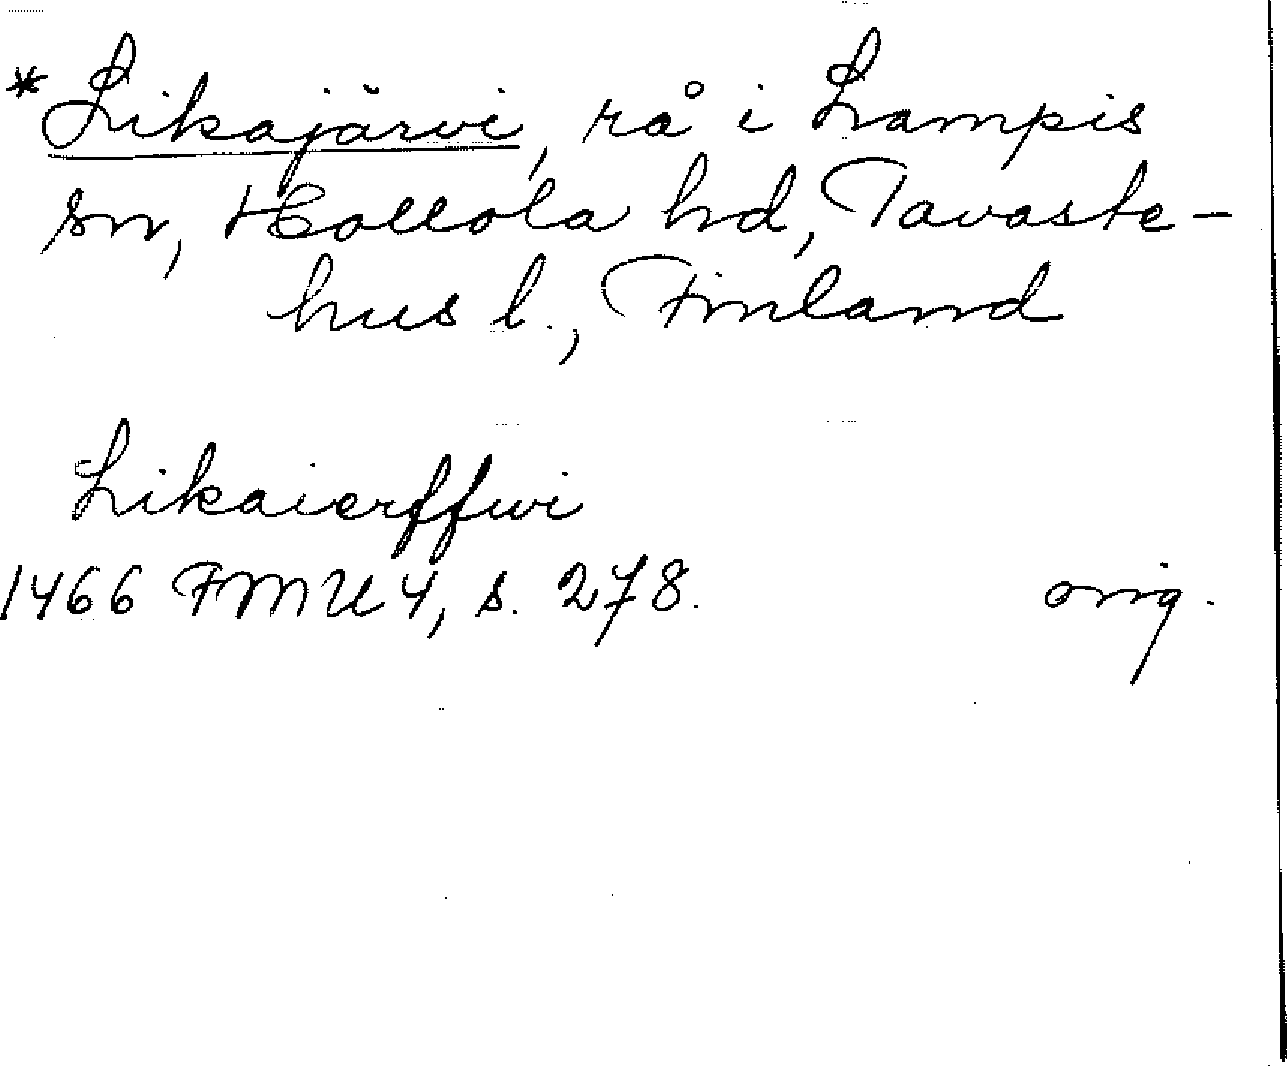 *Likajärvi, rå i Lampis
sn, Hollola hd, Tavaste-
hus l., Finland
Likaierffwi
1466 FMU 4, s. 278. orig.